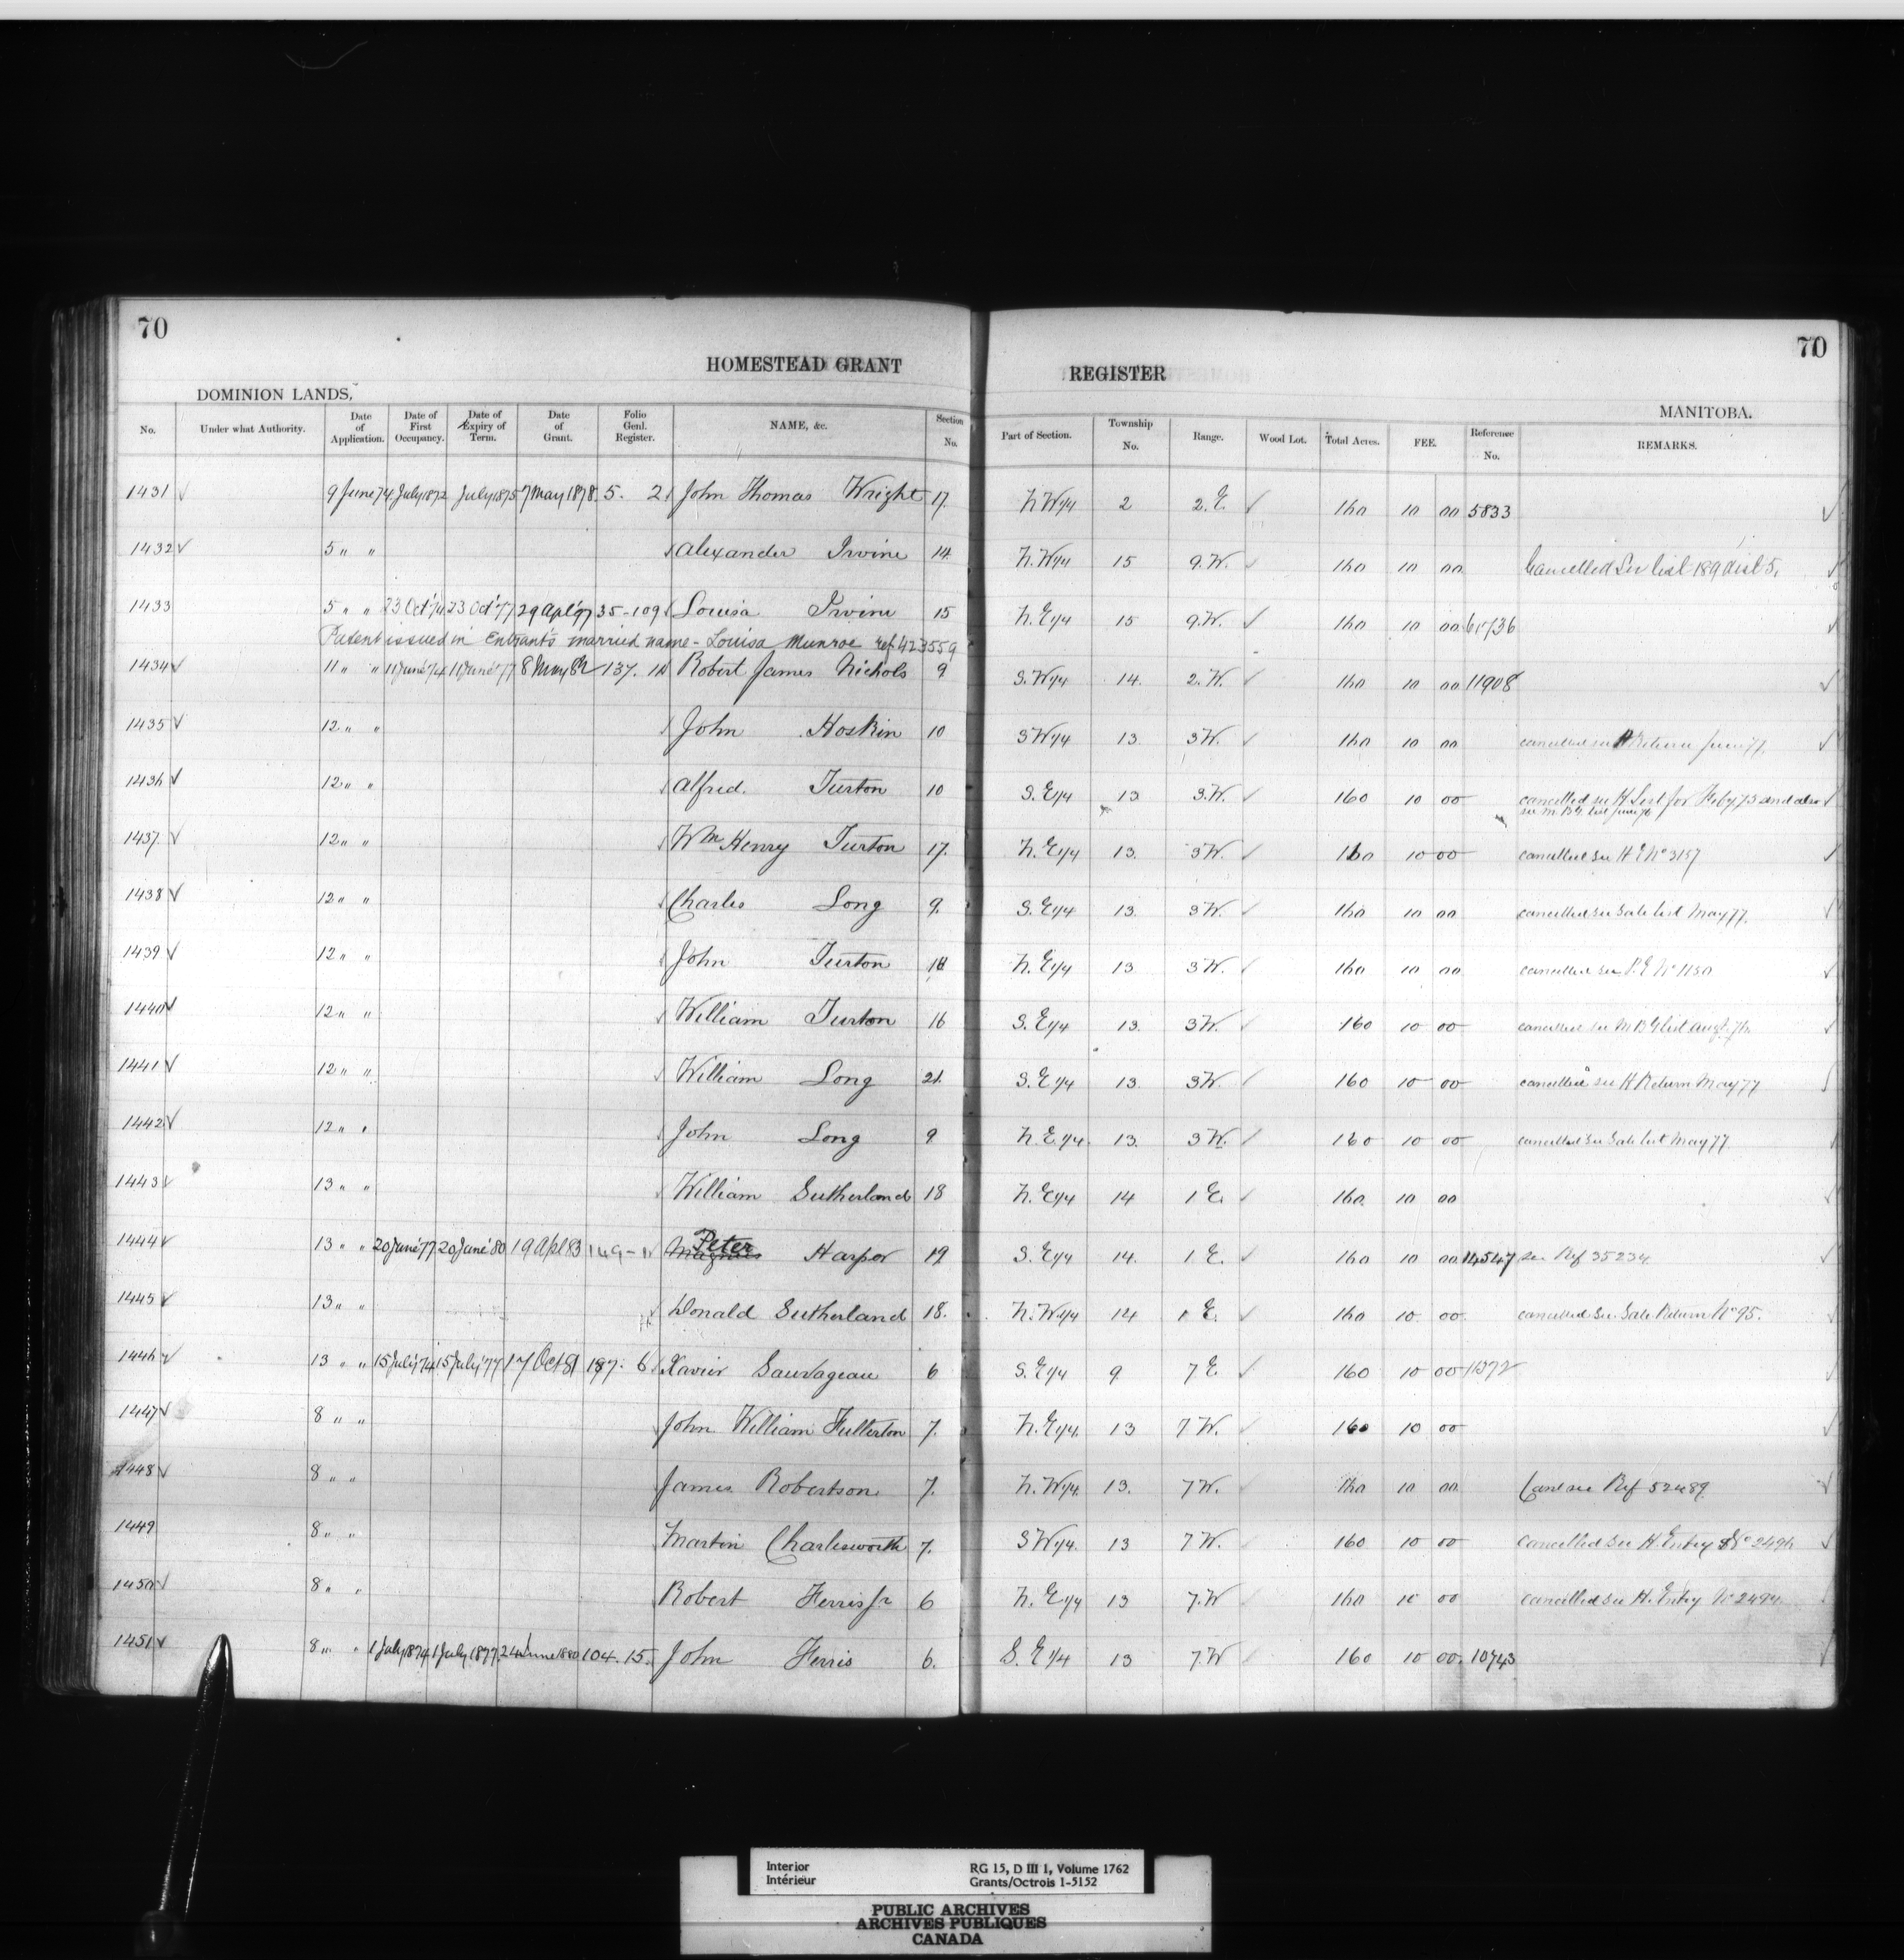 70
70
HOMESTEAD GRANT REGISTER
DOMINION LANDS, MANITOBA.
No. Under what Authority. Date of Application. Date of First Occupancy. Date of Expiry of Term. Date of Grant. Folio Genl. Register. NAME, &c. Section No. Part of Section. Township No. Range. Wood Lot. Total Acres. FEE. Reference No. REMARKS.
1431 9 June 74 July 1872 July 1875 7 May 1878 5. 2 John Thomas Wright 17. N.W 1/4 2 2. E. 160 10 00 5833
1432 5 " " Alexander Irvine 14 N.W 1/4 15 9. W. 160 10 00 Cancelled See list 189 dist 5.
1433 5 " " 23 Oct '74 23 Oct '77 29 Apl '97 35-109 Louisa Irvine 15 N. E 1/4 15 9. W. 160 10 00
Patent issued in Entrant's married name - Louisa Munroe ref. 423559
1434 11 " " 11 June '74 11 June '77 8 May 82 137. Robert James Nichols 9 S. W 1/4 14. 2. W. 160 10 00 11908
1435 12 " " John Hoskin 10 S W 1/4 13 3 W. 160 10 00 cancelled see H Return June 77.
1436 12 " " Alfred. Turton 10 S. E 1/4 13 3. W. 160 10 00 cancelled see H List for Feby 75 and also
see M B G list June 76
1437. 12 " " Wm Henry Turton 17. N. E 1/4 13. 3 W. 160 10 00 cancelled see H E No 3157
1438 12 " " Charles Long 9. S. E 1/4 13. 3 W. 160 10 00 cancelled see Sale list May 77.
1439 12 " " John Turton N. E 1/4 13 3 W. 160 10 00 cancelled see P. E No 1150
1440 12 " " William Turton 16 S. E 1/4 13. 3 W. 160 10 00 cancelled see M B G list Augt. 76
1441 12 " " William Long 21. S. E 1/4 13. 3 W. 160 10 00 cancelled see H Return May 77
1442 12 " " John Long 9 N. E. 1/4 13. 3 W. 160 10 00 cancelled see Sale list May 77.
1443 13 " " William Sutherland 18 N. E 1/4 14 1 E. 160 10 00
1444 13 " " 20 June '77 20 June '80 19 Apl 83 149 - Magnus Peter Harper 19 S. E 1/4 14. 1 E. 160 10 00 14547 see Ref 35234
1445 13 " " Donald Sutherland 18. N. W 1/4 14 1 E. 160 10 00 cancelled See Sale Return No 95.
1446 13 " " 15 July '74 15 July '77 17 Oct 81 187. 6 Xavier Sauvageau 6 S. E 1/4 9 7 E 160 10 00
1447 8 " " John William Fullerton 7. N. E 1/4 13 7 W. 160 10 00
1448 8 " " James Robertson 7. N. W 1/4 13. 7 W. 160 10 00 Canc see Ref 52489
1449 8 " " Martin Charlesworth 7. S W 1/4 13 7 W. 160 10 00 cancelled see H. Entry No 2496
1450 8 " " Robert Ferris Jr 6 N. E 1/4 13 7. W 160 10 00 cancelled see H. Entry No 2494
1451 8 " " 1 July 1874 1 July 1877 24 June 1880 104. 15. John Ferris 6. S. E 1/4 13 7. W 160 10 00 10743
Interior
Intérieur
RG 15, D III 1, Volume 1762
Grants/Octrois 1-5152
PUBLIC ARCHIVES
ARCHIVES PUBLIQUES
CANADA